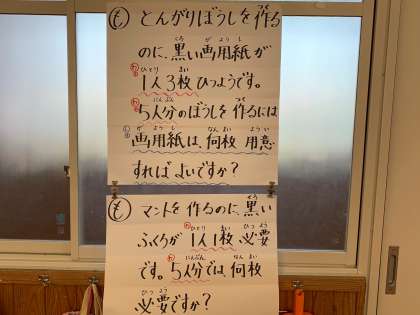 も とんがりぼうしを作る
のに、黒い画用紙が
1人3枚ひつようです。
5人分のぼうしを作るには
画用紙は、何枚 用意
すればよいですか？
も マントを作るのに、黒い
ふくろが 1人1枚 必要
です。5人分では、何枚
必要ですか？